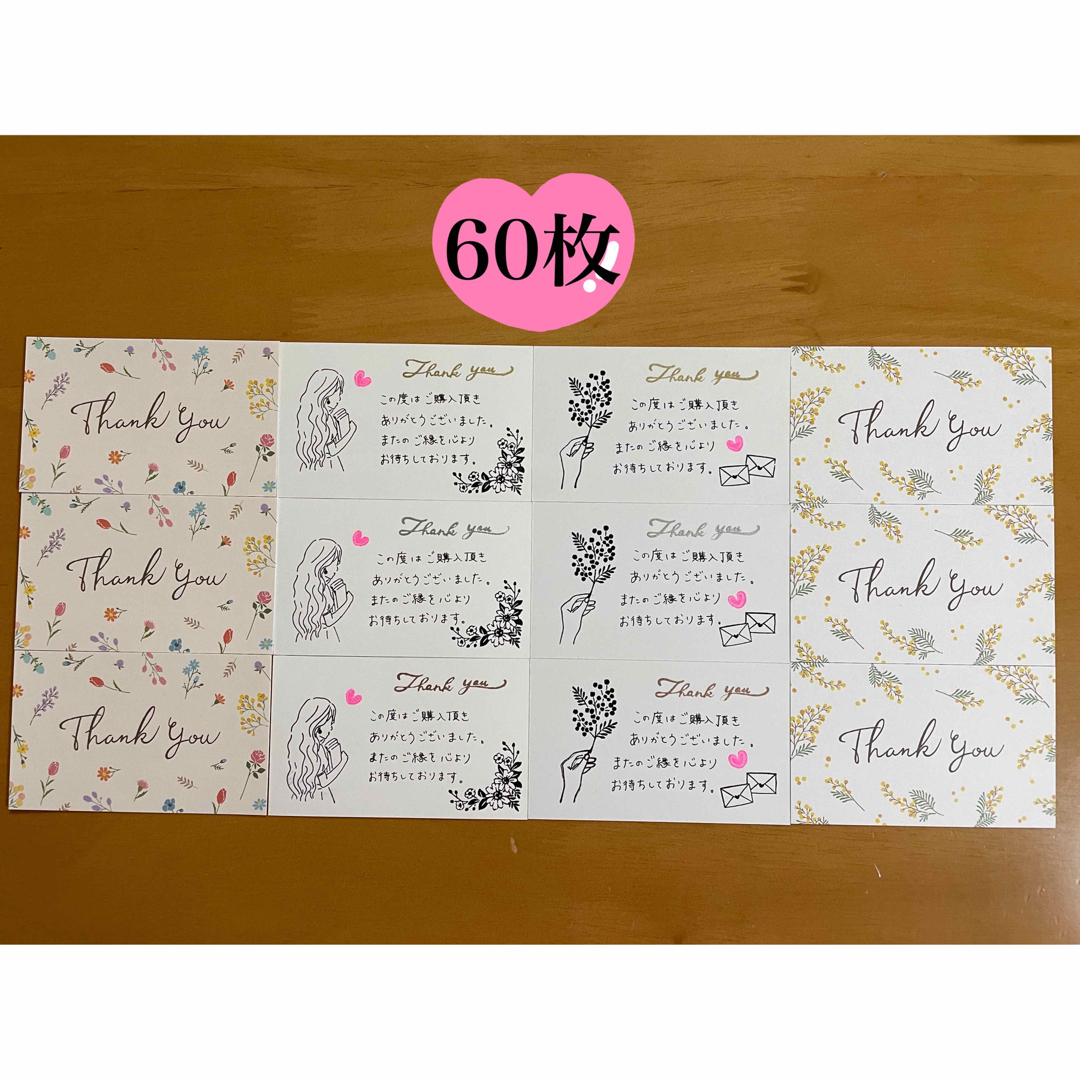 60枚!
Thank You
Thank you
この度はご購入頂き
ありがとうございました。
またのご縁を心より
お待ちしております。
Thank you
この度はご購入頂き
ありがとうございました。
またのご縁を心より
お待ちしております。
Thank You
Thank You
Thank you
この度はご購入頂き
ありがとうございました。
またのご縁を心より
お待ちしております。
Thank you
この度はご購入頂き
ありがとうございました。
またのご縁を心より
お待ちしております。
Thank You
Thank You
Thank you
この度はご購入頂き
ありがとうございました。
またのご縁を心より
お待ちしております。
Thank you
この度はご購入頂き
ありがとうございました。
またのご縁を心より
お待ちしております。
Thank You